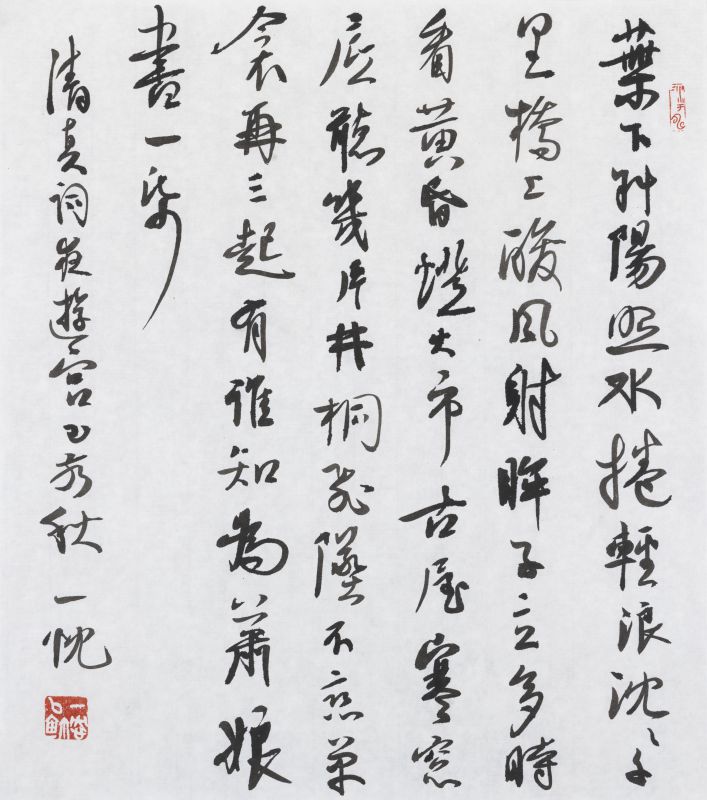 葉下斜陽照水捲輕浪沈〻千
里橋上酸風射眸子立多時
看黃昏燈火市古屋寒窓
底聽幾片井桐飛墜不戀單
衾再三起有誰知為蕭娘
書一紙
清真詞夜遊宮己亥秋一忱